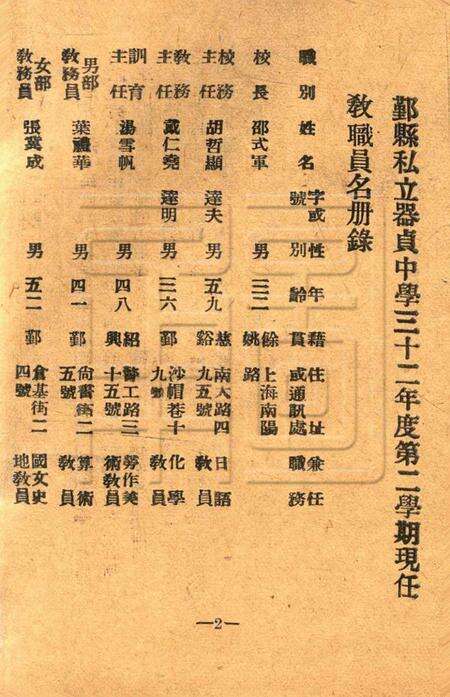 鄞縣私立器貞中學三十二年度第二學期現任
教職員名册錄
職別 姓名 字或號 性別 年齡 籍貫 住址或通訊處 兼任職務
校長 邵式軍 男 三二 餘姚 上海南陽路
校務主任 胡哲顯 達夫 男 五九 慈谿 南大路四九五號 日語教員
教務主任 戴仁堯 達明 男 三六 鄞 沙帽巷十九號 化學教員
訓育主任 湯雪帆 男 四八 紹興 醫工路三十五號 勞作美術教員
男部教務員 葉禮華 男 四一 鄞 尙書街二五號 算術教員
女部教務員 張蓂成 男 五二 鄞 倉基街二四號 國文史地教員
—2—